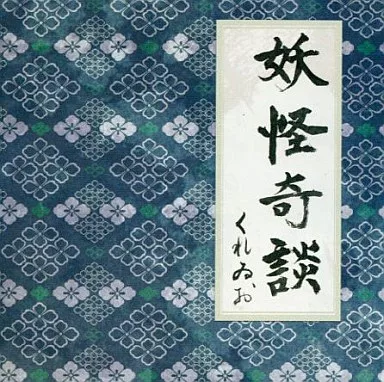 妖怪奇談
くれゐお